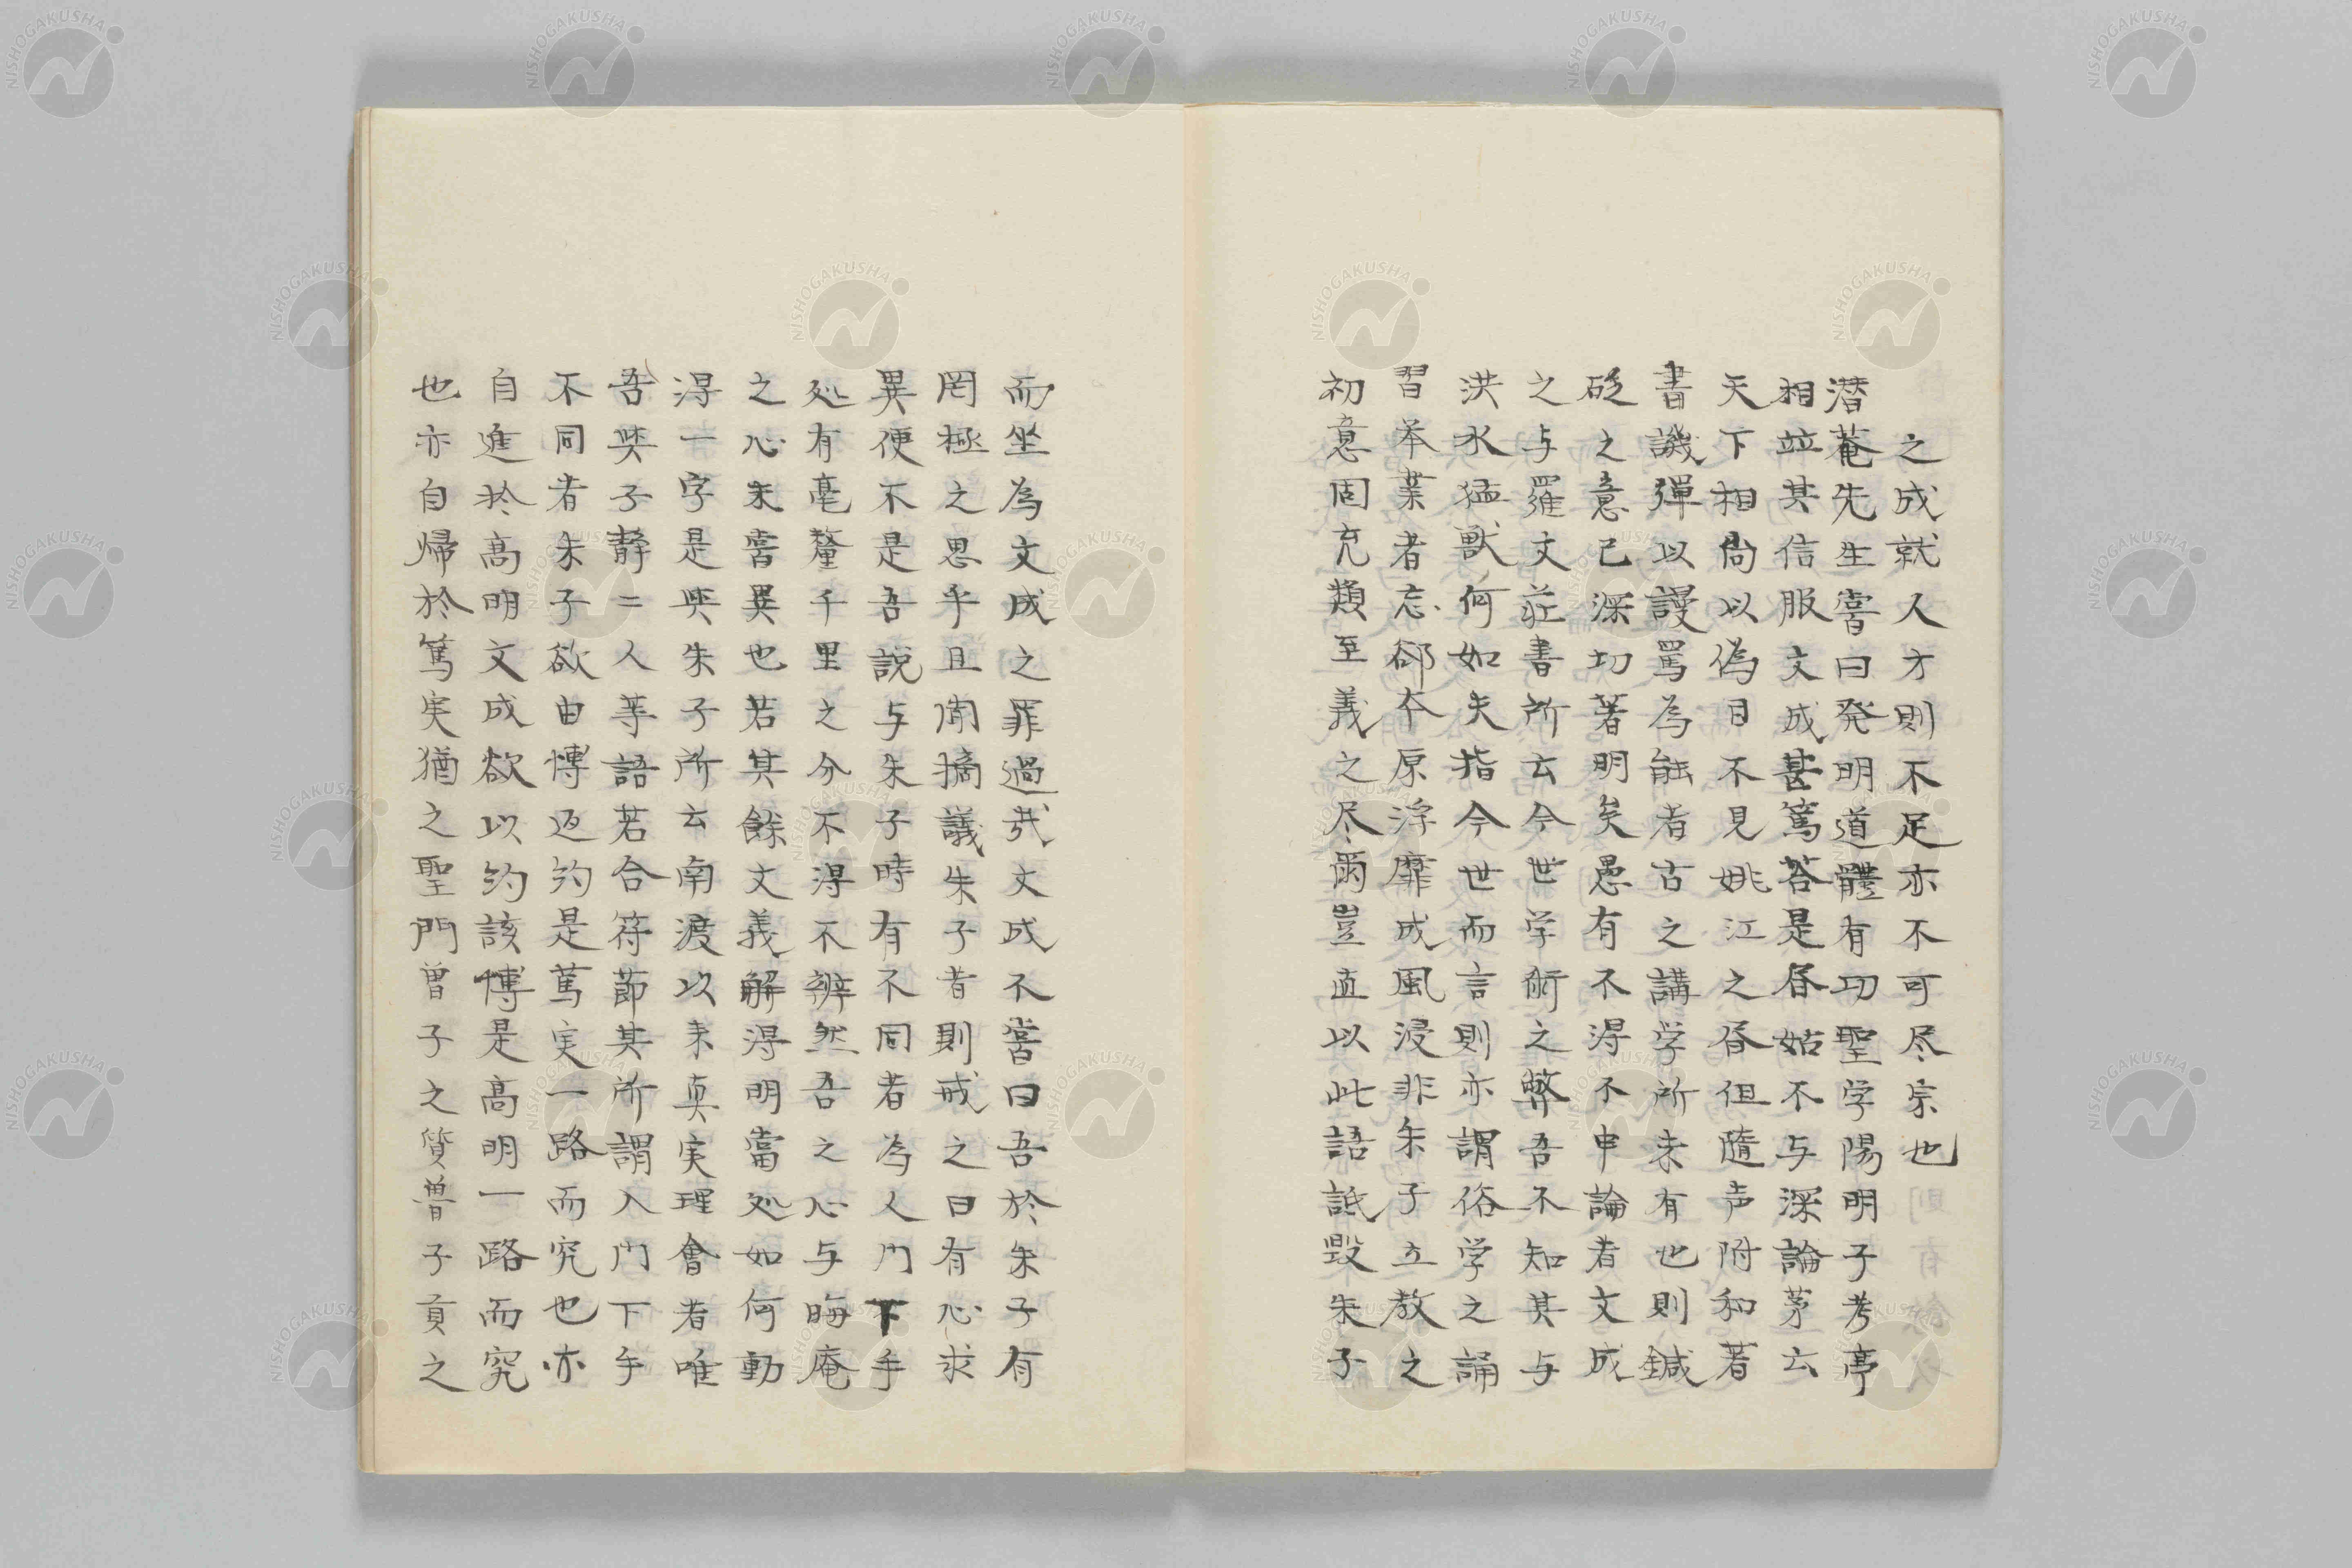 之成就人才則不足亦不可尽宗也
潜菴先生嘗曰発明道體有功聖学陽明子考亭
相竝其信服文成甚篤答是昏姑不与深論茅云
天下相尚以偽目不見姚江之昏但隨声附和著
書譏彈以謾罵為能者古之講学所未有也則鍼
砭之意已深切著明矣愚有不得不申論者文成
之与羅文莊書所云今世学術之弊吾不知其与
洪水猛獣何如夫指今世而言則亦謂俗学之誦
習举業者忘郤本原浮靡成風浸非朱子立教之
初意固充類至義之尽爾豈直以此語詆毀朱子
而坐為文成之罪過哉文成不嘗曰吾於朱子有
罔極之恩乎且閒摘議朱子者則戒之曰有心求
異便不是吾說与朱子時有不同者為入門下手
処有毫釐千里之分不得不辨然吾之心与晦庵
之心未嘗異也若其餘文義解得明當処如何動
得一字是與朱子所云南渡以来真実理會者唯
吾與子靜二人等語若合符節其所謂入門下手
不同者朱子欲由博返約是篤実一路而究也亦
自進於高明文成欲以約該博是高明一路而究
也亦自帰於篤実猶之聖門曽子之質魯子貢之
NISHOGAKUSHA